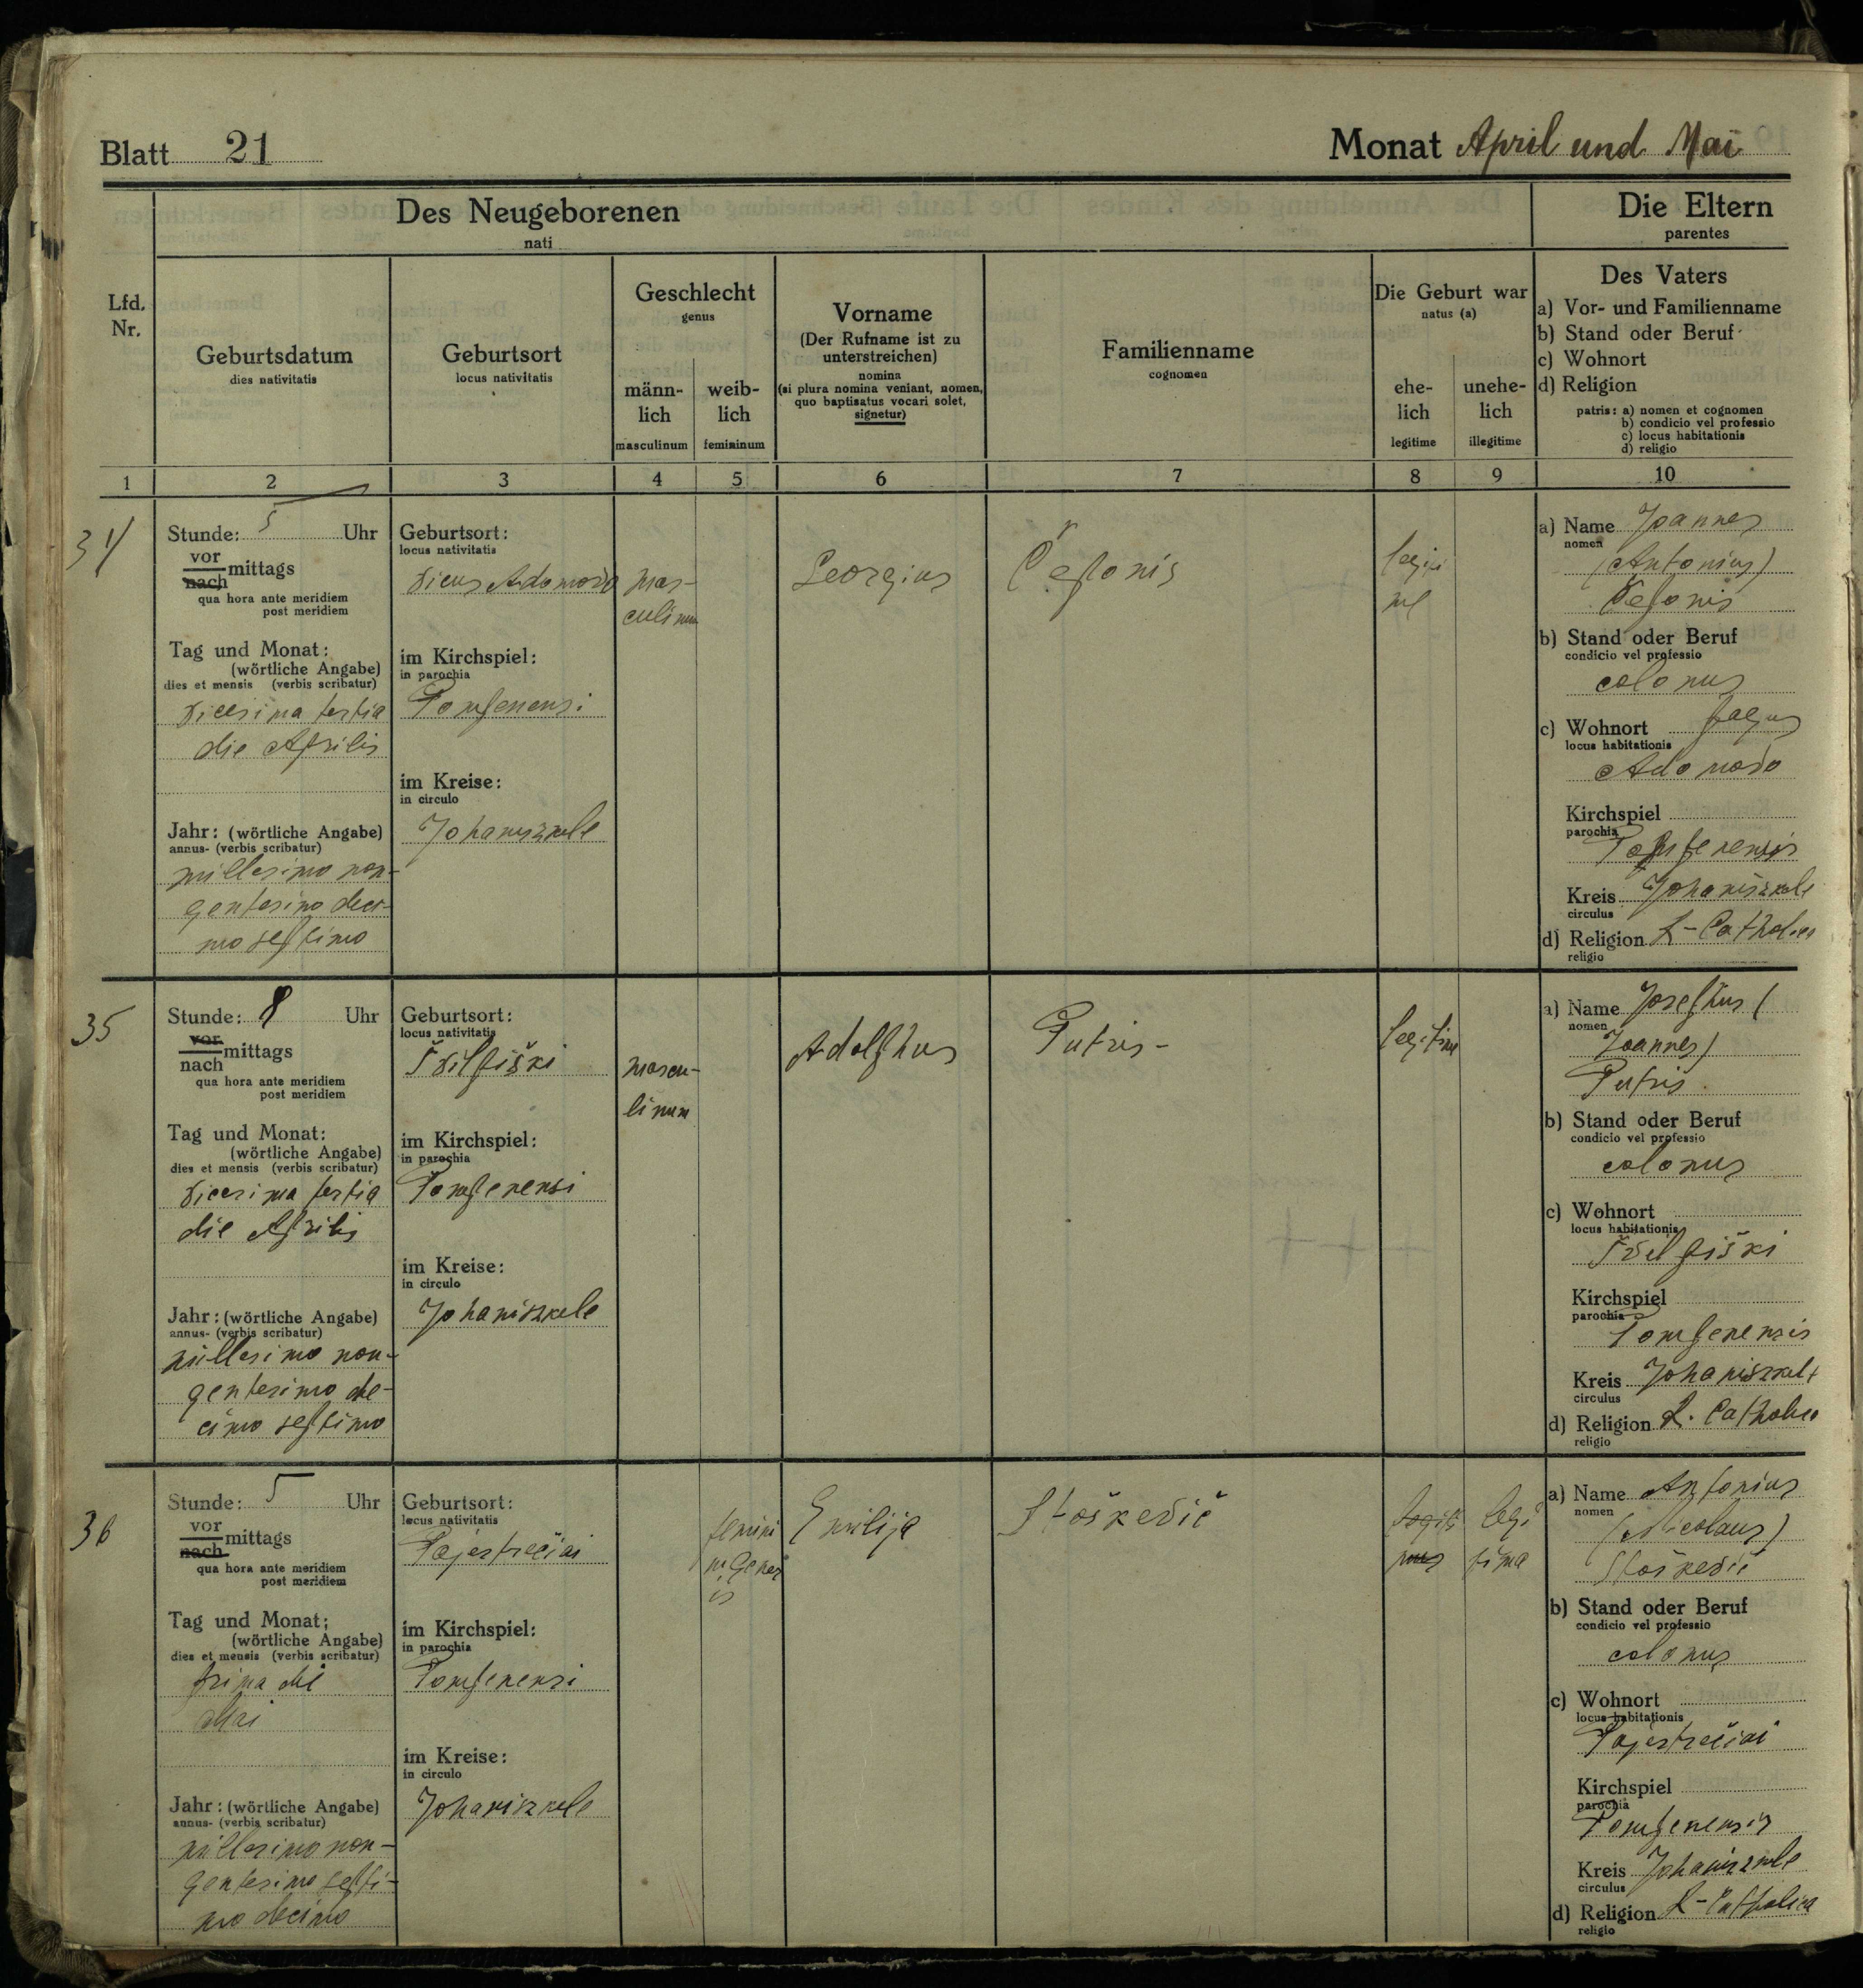 Blatt 21
Monat April und Mai
Des Neugeborenen
nati
Die Eltern
parentes
Lfd. Nr.
Geburtsdatum
dies nativitatis
Geburtsort
locus nativitatis
Geschlecht
genus
männ-
lich
masculinum
weib-
lich
femininum
Vorname
(Der Rufname ist zu
unterstreichen)
nomina
(si plura nomina veniant, nomen,
quo baptisatus vocari solet,
signetur)
Familienname
cognomen
Die Geburt war
natus (a)
ehe-
lich
legitime
unehe-
lich
illegitime
Des Vaters
a) Vor- und Familienname
b) Stand oder Beruf
c) Wohnort
d) Religion
patris: a) nomen et cognomen
b) condicio vel professio
c) locus habitationis
d) religio
1 2 3 4 5 6 7 8 9 10
34
Stunde: 5 Uhr
vor
nach mittags
qua hora ante meridiem
post meridiem
Tag und Monat:
(wörtliche Angabe)
dies et mensis (verbis scribatur)
Vicesima tertia
die Aprilis
Jahr: (wörtliche Angabe)
annus- (verbis scribatur)
millesimo non-
gentesimo deci-
mo septimo
Geburtsort:
locus nativitatis
im Kirchspiel:
in parochia
Pompenensi
im Kreise:
in circulo
Johaniszkele
mas-
culinum
Georgius
Čeponis
legiti
me
a) Name Joannes
nomen
(Antonius)
Čeponis
b) Stand oder Beruf
condicio vel professio
colonus
c) Wohnort pagus
locus habitationis
Kirchspiel
parochia
Pompenensis
Kreis Johaniszkele
circulus
d) Religion R-Catholica
religio
35
Stunde: 8 Uhr
vor
nach mittags
qua hora ante meridiem
post meridiem
Tag und Monat:
(wörtliche Angabe)
dies et mensis (verbis scribatur)
Vicesima tertia
die Aprilis
Jahr: (wörtliche Angabe)
annus- (verbis scribatur)
millesimo non-
gentesimo de-
cimo septimo
Geburtsort:
locus nativitatis
im Kirchspiel:
in parochia
Pompenensi
im Kreise:
in circulo
Johaniszkele
mascu-
linum
Adolphus
Putris-
legitime
a) Name Josephus (
nomen
Joannes)
Putris
b) Stand oder Beruf
condicio vel professio
colonus
c) Wohnort
locus habitationis
Kirchspiel
parochia
Pompenensis
Kreis Johaniszkele
circulus
d) Religion R. Catholica
religio
36
Stunde: 5 Uhr
vor
nach mittags
qua hora ante meridiem
post meridiem
Tag und Monat:
(wörtliche Angabe)
dies et mensis (verbis scribatur)
prima die
Mai
Jahr: (wörtliche Angabe)
annus- (verbis scribatur)
millesimo non-
gentesimo septi-
mo decimo
Geburtsort:
locus nativitatis
Pajestrečiai
im Kirchspiel:
in parochia
Pompenensi
im Kreise:
in circulo
Johaniszkele
femini
ni gener
is
Emilija
Stoškevič
legiti
mus
legi
tima
a) Name Antonius
nomen
(Nicolaus)
Stoškevič
b) Stand oder Beruf
condicio vel professio
colonus
c) Wohnort
locus habitationis
Pajestrečiai
Kirchspiel
parochia
Pompenensis
Kreis Johaniszkele
circulus
d) Religion R-Catholica
religio